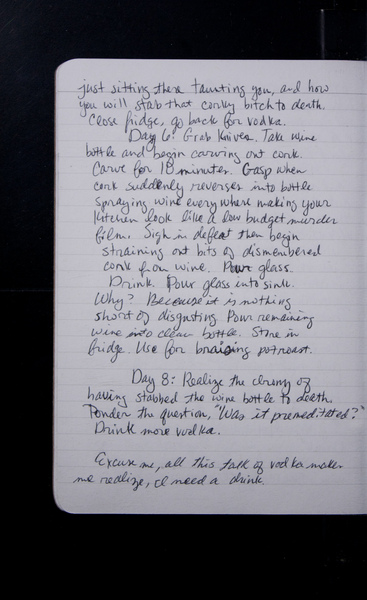 just sitting there taunting you, and how
you will stab that corky bitch to death.
Close fridge, go back for vodka.
Day 6: Grab knives. Take wine
bottle and begin carving out cork.
Carve for 18 minutes. Gasp when
cork suddenly reverses into bottle
spraying wine everywhere making your
kitchen look like a low budget murder
film. Sigh in defeat then begin
straining out bits of dismembered
cork from wine. Pour glass.
Drink. Pour glass into sink.
Why? Because it is nothing
short of disgusting. Pour remaining
wine into clean bottle. Store in
fridge. Use for braising potroast.
Day 8: Realize the irony of
having stabbed the wine bottle to death.
Ponder the question, "Was it premeditated?"
Drink more vodka.
Excuse me, all this talk of vodka makes
me realize, I need a drink.